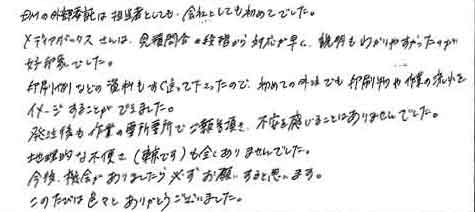 DMの外部委託は担当者としても、会社としても初めてでした。
メディアボックスさんは、見積問合の段階から対応が早く、説明もわかりやすかったのが
好印象でした。
印刷物などの資料もすぐ送って下さったので、初めての外注でも印刷物や作業の流れを
イメージすることができました。
発注後も作業の要所要所でご報告頂き、不安を感じることはありませんでした。
地理的な不便さ(東京です)も全くありませんでした。
今後、機会がありましたら必ずお願いすると思います。
このたびは色々とありがとうございました。